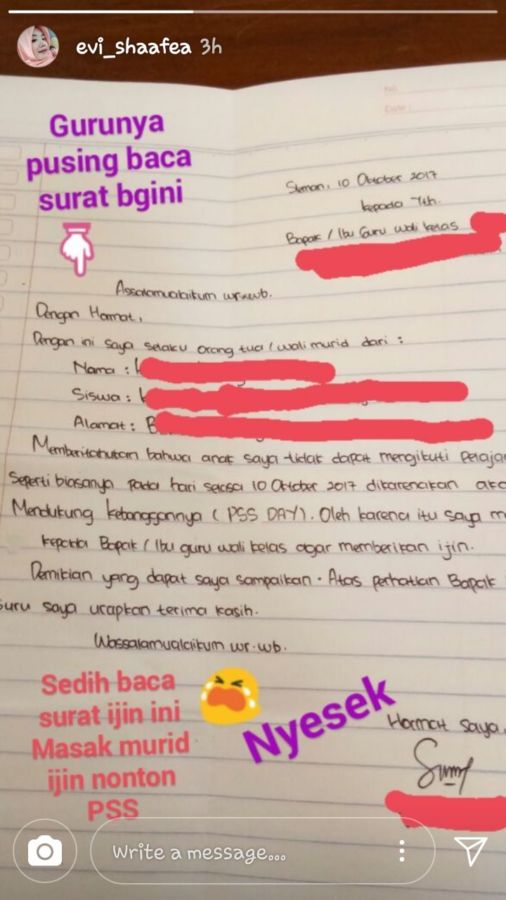 evi_shaafea 3h
No.
Date :
Gurunya
pusing baca
surat bgini
Sleman, 10 Oktober 2017
kepada Yth.
Bapak / Ibu Guru wali kelas
Assalamualaikum wr.wb.
Dengan Hormat,
Dengan ini saya selaku orang tua / wali murid dari :
Nama :
Siswa :
Alamat : B
Memberitahukan bahwa anak saya tidak dapat mengikuti Pelajar
Seperti biasanya pada hari selasa 10 Oktober 2017 dikarenakan aka
Mendukung kebanggannya ( PSS DAY). Oleh karena itu saya m
kepada Bapak / Ibu guru wali kelas agar memberikan ijin.
Demikian yang dapat saya sampaikan. Atas perhatian Bapak
Guru saya ucapkan terima kasih.
Wassalamualaikum wr.wb.
Sedih baca
surat ijin ini
Masak murid
ijin nonton
PSS
Nyesek
Hormat saya,
Write a message...